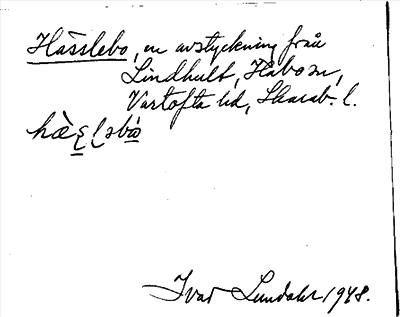 Hasslebo, en avstyckning från
Lindhult, Habo sn,
Vartofta hd, Skarab. l.
hὰs̲l̥əbò̲
Ivar Lundahl 1948.